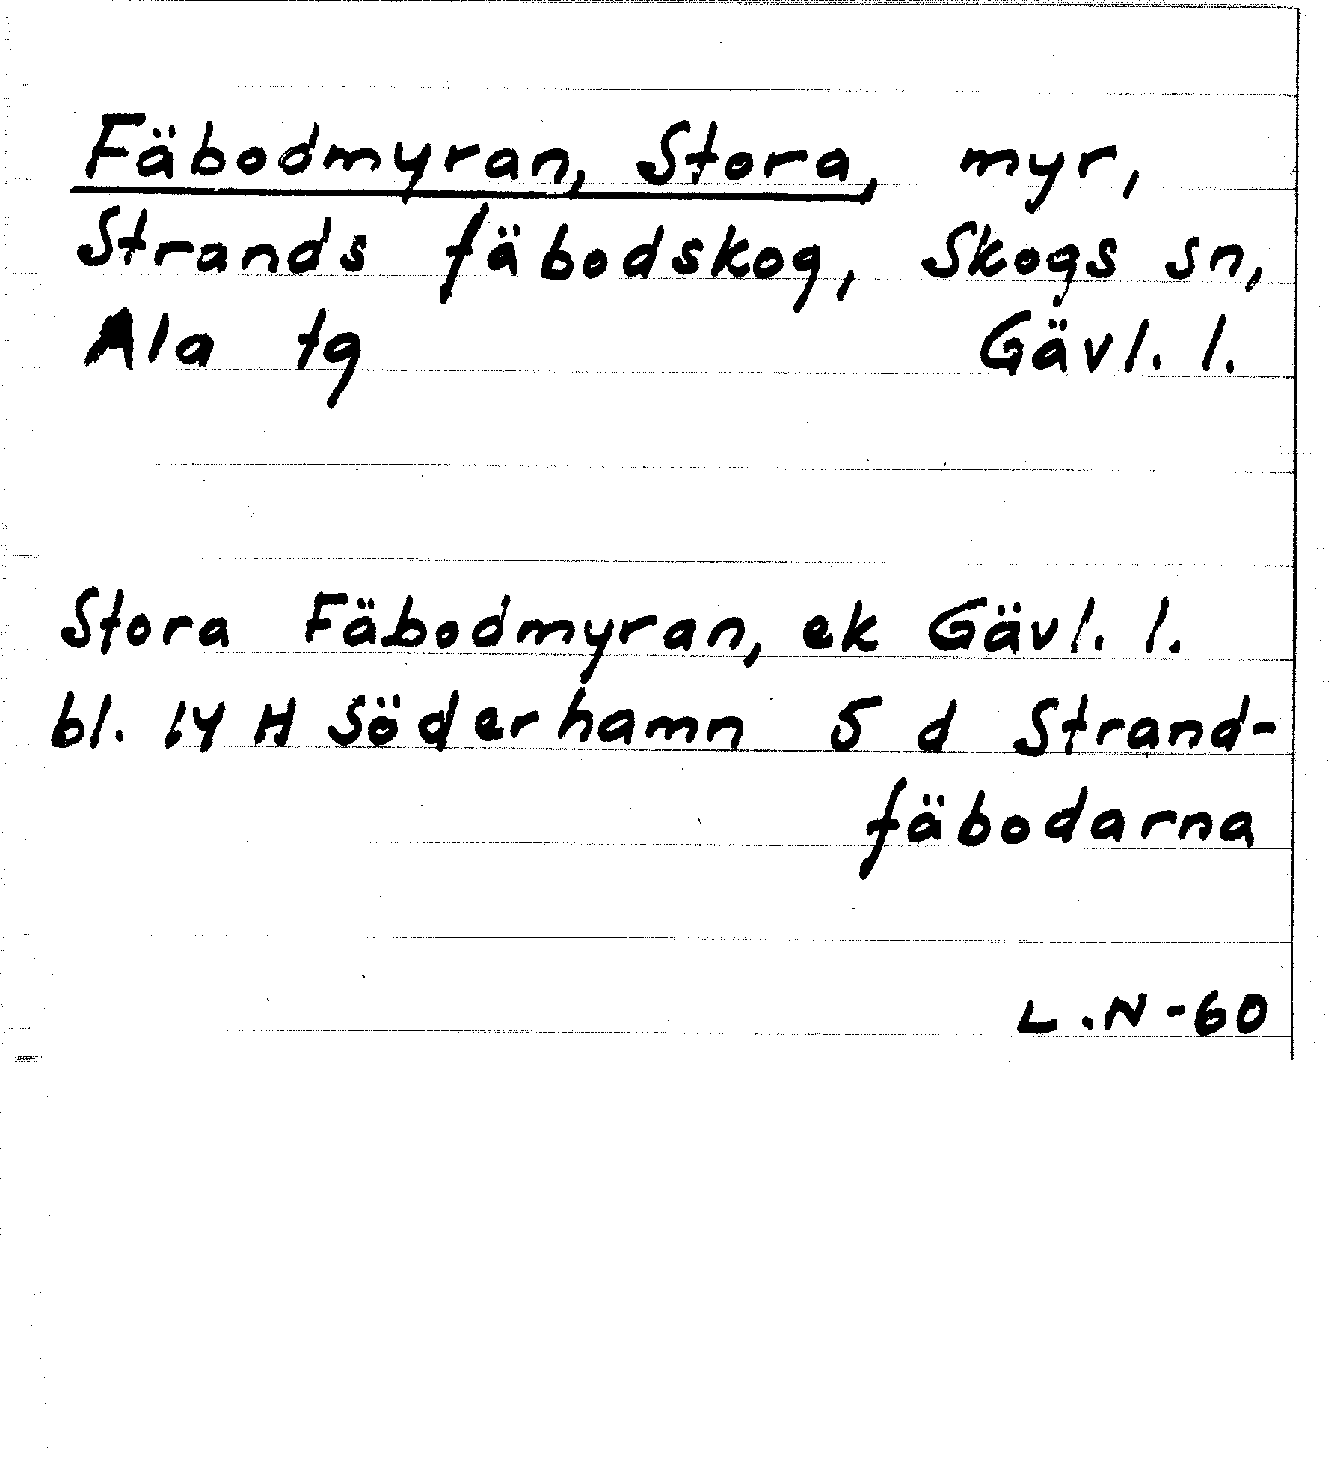 Fäbodmyran, Stora, myr,
Strands fäbodskog, Skogs sn,
Ala tg Gävl. l.
Stora Fäbodmyran, ek Gävl. l.
bl. 14 H Söderhamn 5 d Strand-
fäbodarna
L.N-60